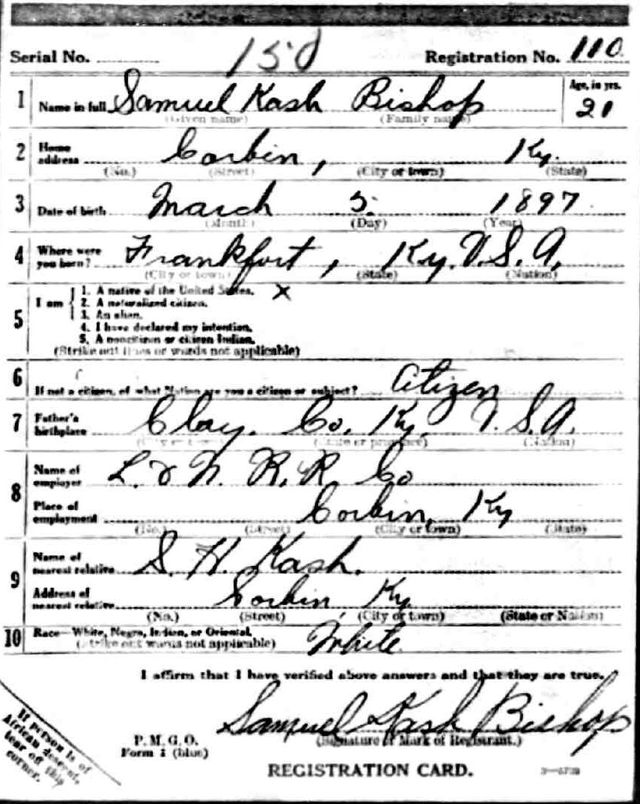 Serial No. 150 Registration No. 110
1 Name in full Samuel Kash Bishop Age, in yrs.
(Given name) (Family name) 21
2 Home address Corbin, Ky.
(No.) (Street) (City or town) (State)
3 Date of birth March 5 1897
(Month) (Day) (Year)
4 Where were you born? Frankfort, Ky. U.S.A.
(City or town) (State) (Nation)
1. A native of the United States. X
2. A naturalized citizen.
5 I am 3. An alien.
4. I have declared my intention.
5. A noncitizen or citizen Indian.
(Strike out lines or words not applicable)
6 If not a citizen, of what Nation are you a citizen or subject? Citizen
7 Father's birthplace Clay. Co. Ky. U.S.A.
(City or town) (State or province) (Nation)
8 Name of employer L. & N. R.R. Co
Place of employment Corbin, Ky
(No.) (Street) (City or town) (State)
9 Name of nearest relative S. H. Kash.
Address of nearest relative Corbin, Ky.
(No.) (Street) (City or town) (State or Nation)
10 Race—White, Negro, Indian, or Oriental. White
(Strike out words not applicable)
I affirm that I have verified above answers and that they are true.
Samuel Kash Bishop
P. M. G. O. (Signature or Mark of Registrant.)
Form 1 (blue)
REGISTRATION CARD.
If person is of
African descent,
tear off this
corner.